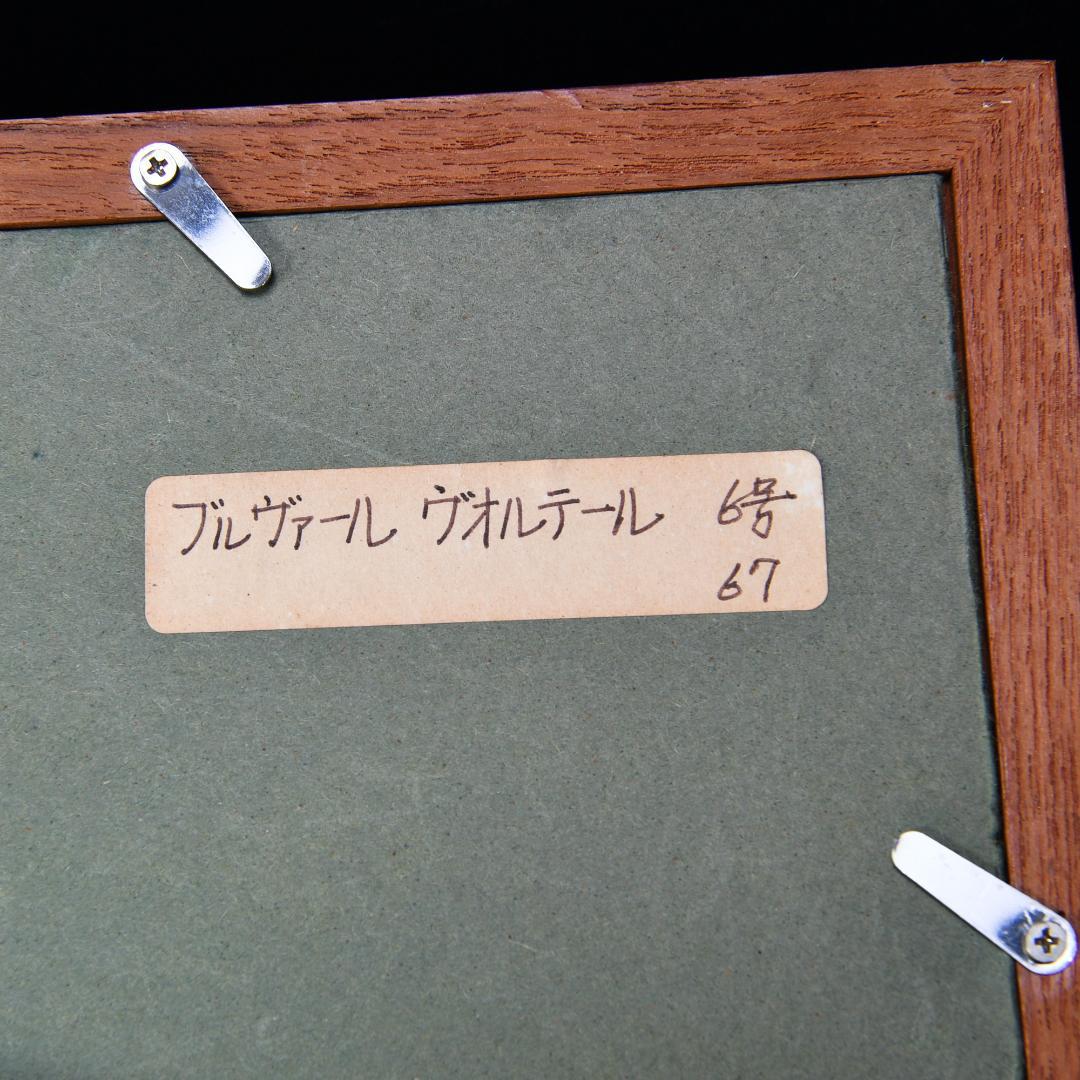 ブルヴァール ヴオルテール 6号
67